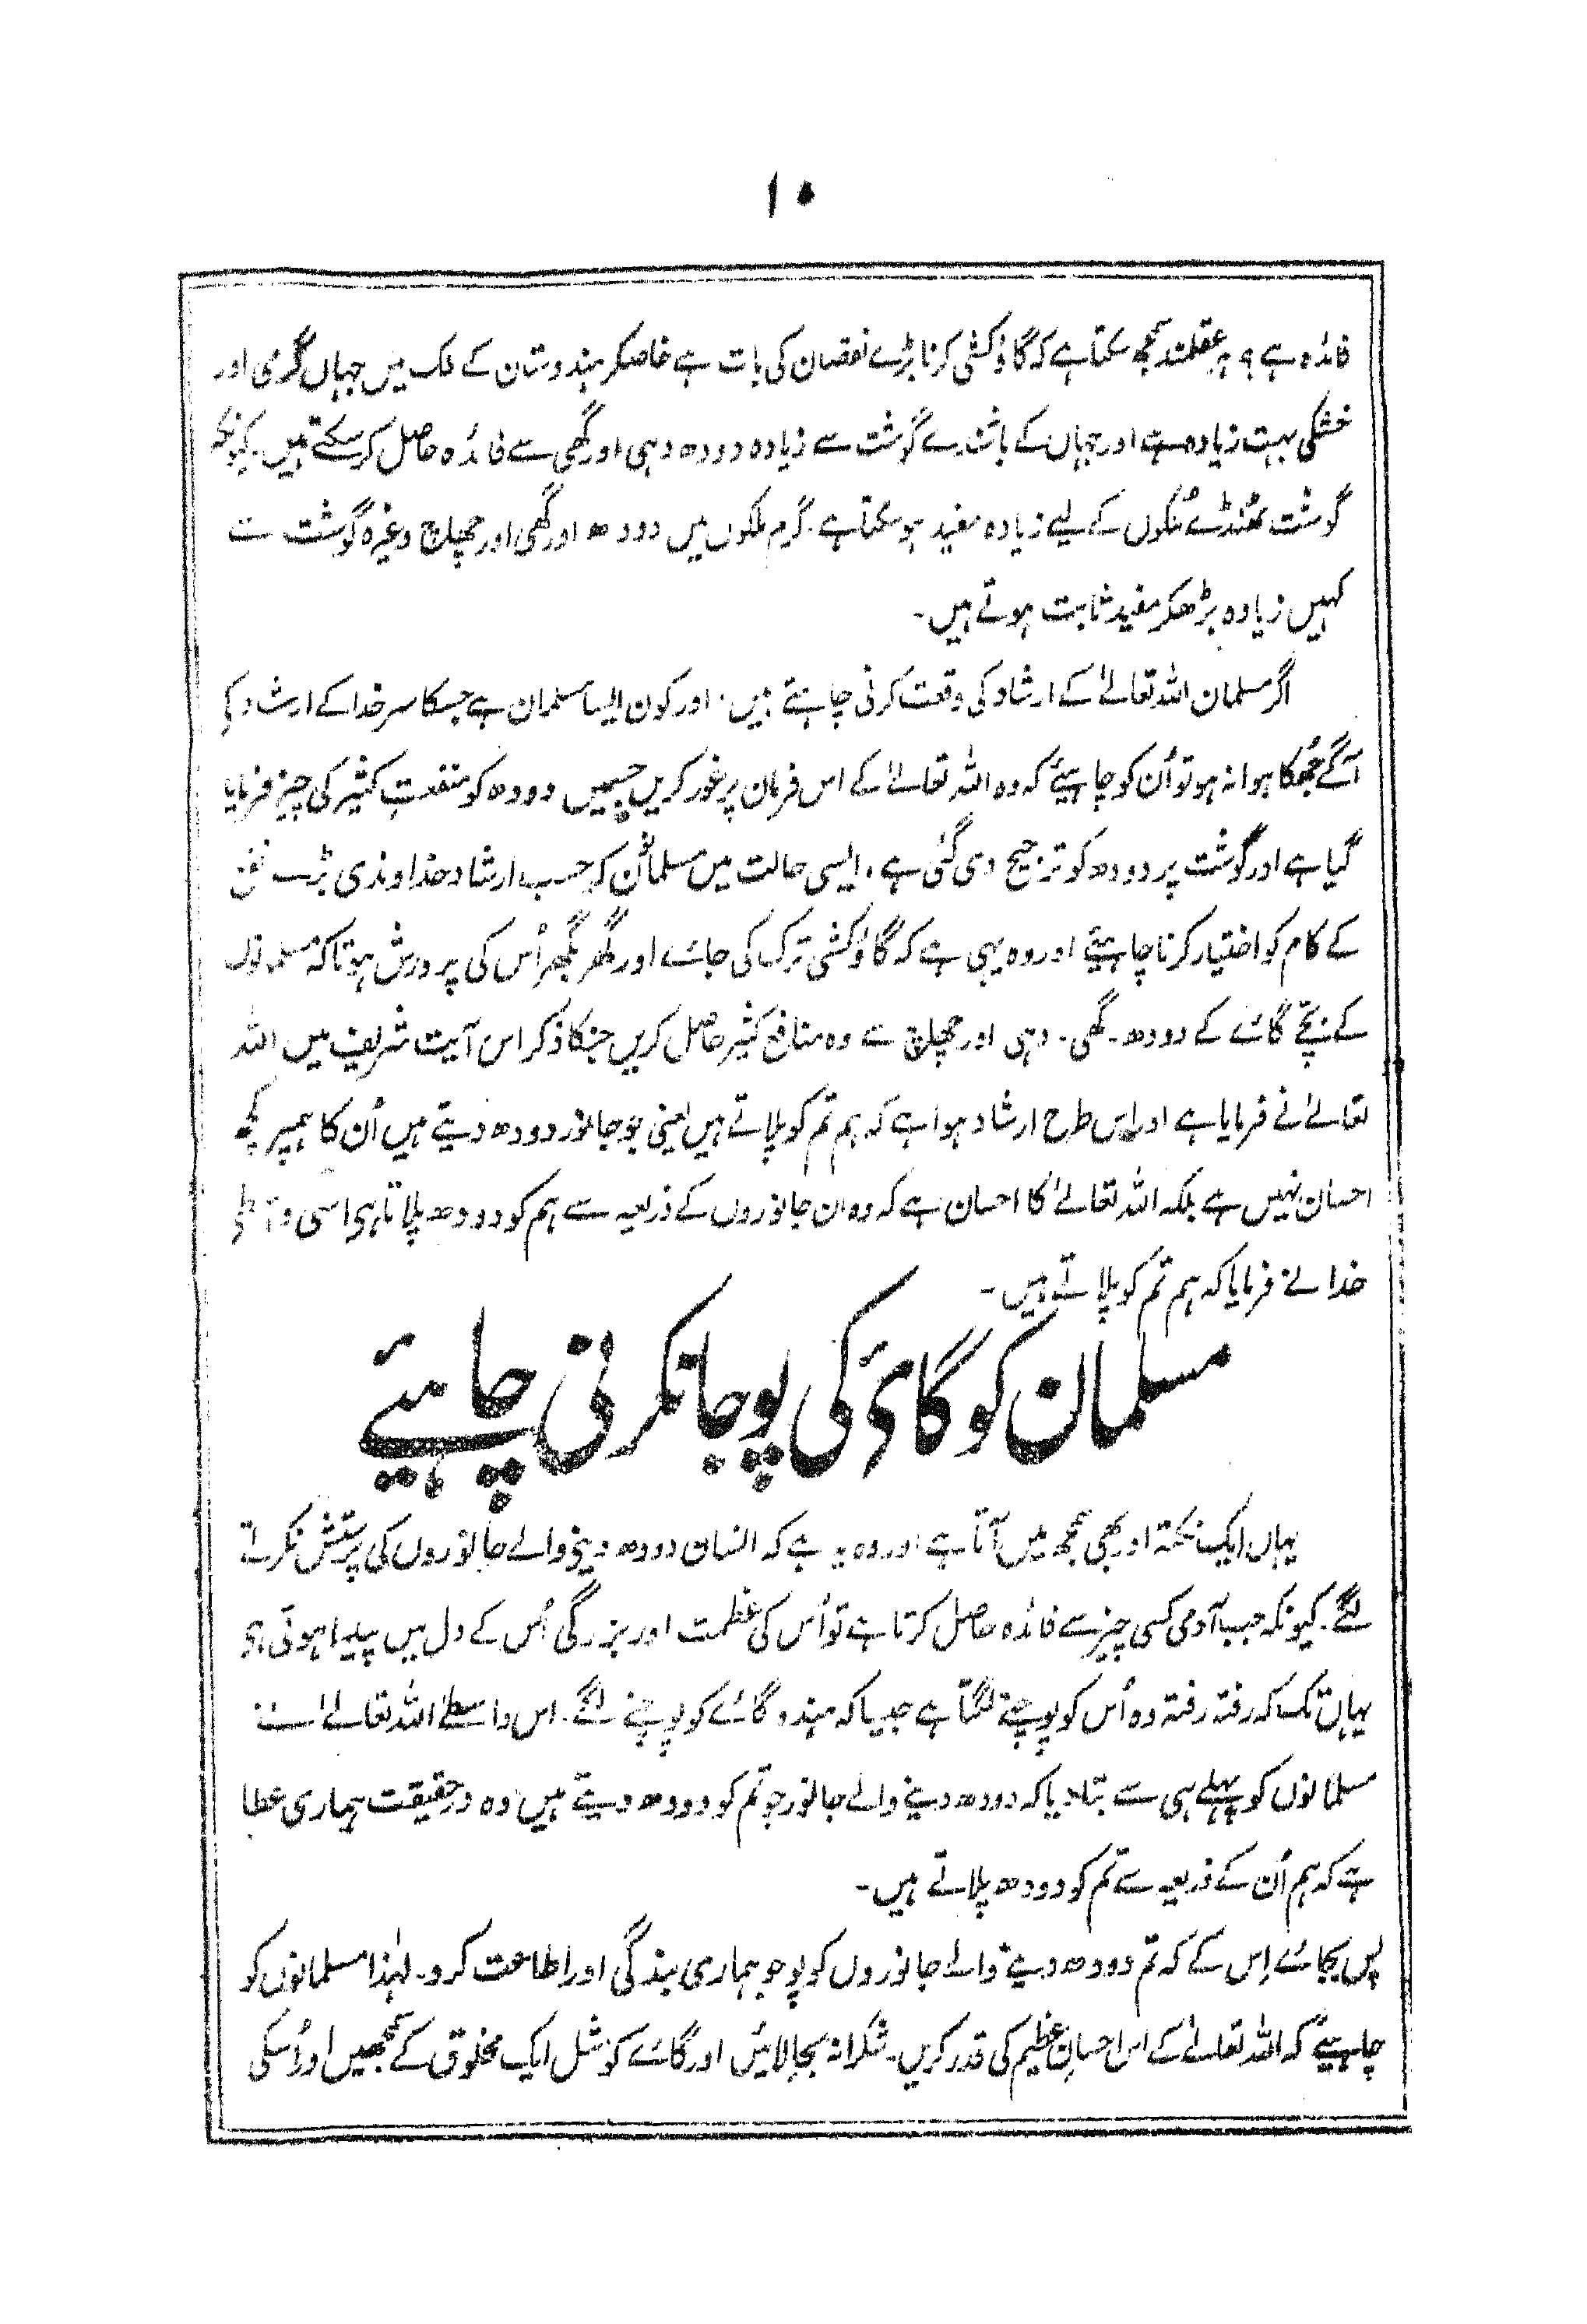 ۱۰
فائدہ ہے ؟ ہر عقلمند سمجھ سکتا ہے کہ گاؤ کشی کرنا بڑے نقصان کی بات ہے خاصکر ہندوستان کے ملک میں جہاں گرمی اور
خشکی بہت زیادہ ہے اور جہاں کے باشندے گوشت سے زیادہ دودھ دہی اور گھی سے فائدہ حاصل کر سکتے ہیں۔ کیونکہ
گوشت ٹھنڈے ملکوں کے لیے زیادہ مفید ہو سکتا ہے۔ گرم ملکوں میں دودھ اور گھی اور چھاچ وغیرہ گوشت سے
کہیں زیادہ بڑھکر مفید ثابت ہوتے ہیں۔
اگر مسلمان اللہ تعالےٰ کے ارشاد کی وقعت کرنی چاہتے ہیں۔ اور کون ایسا مسلمان ہے جسکا سر خدا کے ارشاد کے
آگے جُھکا ہوا نہ ہو تو اُن کو چاہیئے کہ وہ اللہ تعالےٰ کے اس فرمان پر غور کریں جسمیں دودھ کو منفعتِ کثیر کی چیز فرمایا
گیا ہے اور گوشت پر دودھ کو ترجیح دی گئی ہے، ایسی حالت میں مسلمانوں کو حسب ارشاد خداوندی بڑے نفع
کے کام کو اختیار کرنا چاہیئے اور وہ یہی ہے کہ گاؤ کشی ترک کی جائے اور گھر بگھر اُس کی پرورش ہو تاکہ مسلمانوں
کے بچے گائے کے دودھ۔ گھی۔ دہی اور چھاچ سے وہ منافع کثیر حاصل کریں جنکا ذکر اس آیت شریف میں اللہ
تعالےٰ نے فرمایا ہے اور اس طرح ارشاد ہوا ہے کہ ہم تم کو پلاتے ہیں یعنی جو جانور دودھ دیتے ہیں اُن کا ہمپر کچھ
احسان نہیں ہے بلکہ اللہ تعالےٰ کا احسان ہے کہ وہ ان جانوروں کے ذریعہ سے ہم کو دودھ پلاتا ہی اسی واسطے
خدا نے فرمایا کہ ہم تم کو پلاتے ہیں۔
مسلمان کو گائ کی پوجا نکرنی چاہیئے
یہاں ایک نکتہ اور بھی سمجھ میں آتا ہے اور وہ یہ ہے کہ انسان دودھ دینے والے جانوروں کی پرستش نکرنے
لگے۔ کیونکہ جب آدمی کسی چیز سے فائدہ حاصل کرتا ہے تو اُس کی عظمت اور بزرگی اُس کے دل میں پیدا ہوتی ہی
یہاں تک کہ رفتہ رفتہ وہ اُس کو پوجنے لگتا ہے جیسا کہ ہندو گائے کو پوجنے لگے۔ اس واسطے اللہ تعالےٰ نے
مسلمانوں کو پہلے ہی سے بتا دیا کہ دودھ دینے والے جانور جو تم کو دودھ دیتے ہیں وہ درحقیقت ہماری عطا
ہے کہ ہم اُن کے ذریعہ سے تم کو دودھ پلاتے ہیں۔
پس بجائے اِس کے کہ تم دودھ دینے والے جانوروں کو پوجو ہماری بندگی اور اطاعت کرو۔ لہٰذا مسلمانوں کو
چاہیئے کہ اللہ تعالےٰ کے اس احسان عظیم کی قدر کریں۔ شکرانہ بجا لائیں اور گائے کو مثل ایک مخلوق کے سمجھیں اور اُسکی